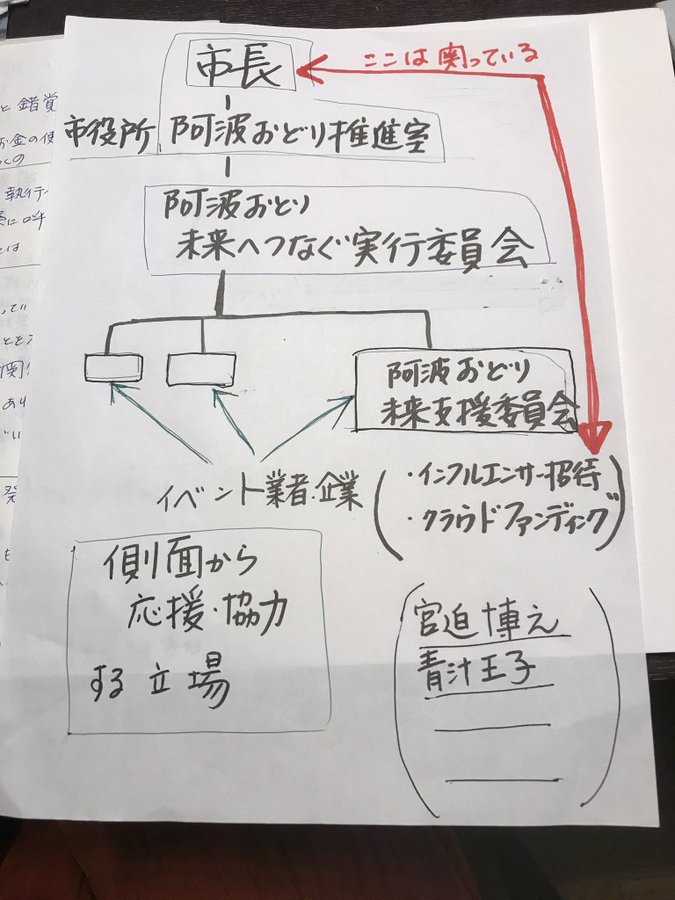 市長
ここは関っている
市役所
阿波おどり推進室
阿波おどり
未来へつなぐ実行委員会
阿波おどり
未来支援委員会
イベント業者・企業
・インフルエンサー招待
・クラウドファンディング
側面から
応援・協力
する立場
宮迫博之
青汁王子